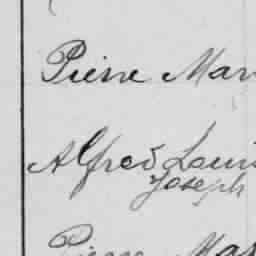 Pierre Mar
Alfred Loui
Joseph
Pierre Mar